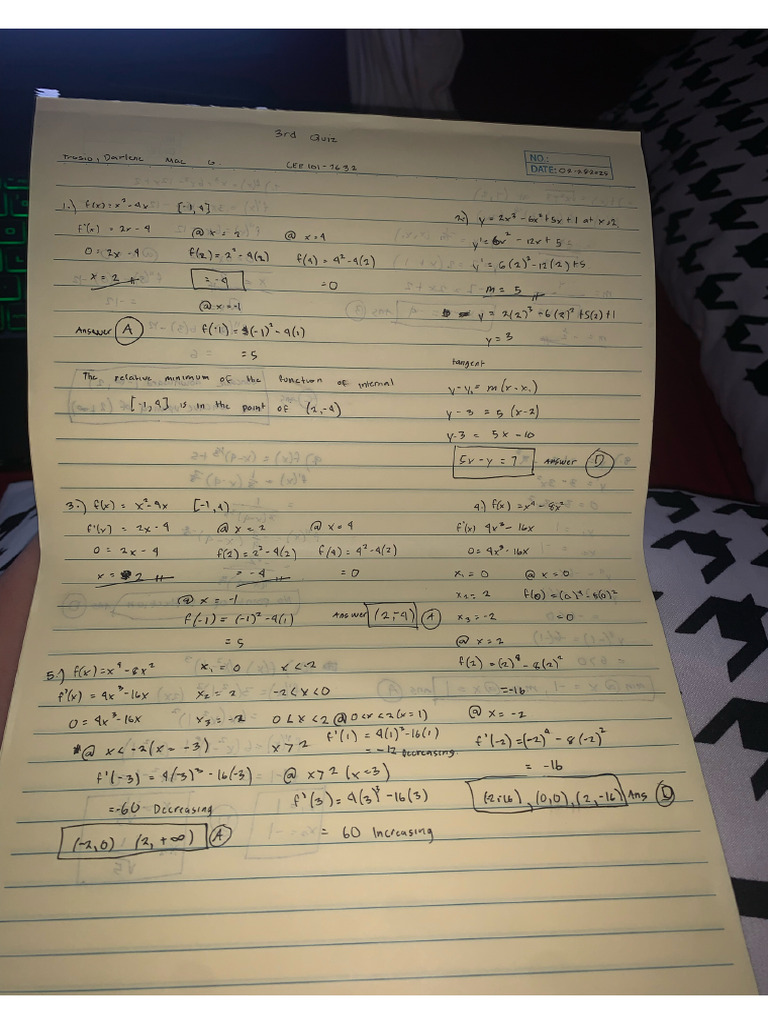 3rd Quiz
Trasio, Darlene Mae G. CEE 101 - 7632
NO.:
DATE: 02-282025
1.) f(x) = x² - 4x [-1, 4]
f'(x) = 2x - 4
0 = 2x - 4
x = 2
@ x = 2
f(2) = 2² - 4(2)
= -4
@ x = 4
f(4) = 4² - 4(2)
= 0
@ x = -1
f(-1) = (-1)² - 4(1)
= 5
Answer A
The relative minimum of the function of internal
[-1, 4] is in the point of (2, -4)
2.) y = 2x³ - 6x² + 5x + 1 at x=2
y' = 6x² - 12x + 5
y' = 6(2)² - 12(2) + 5
m = 5
y = 2(2)³ - 6(2)² + 5(2) + 1
y = 3
tangent
y - y₁ = m(x - x₁)
y - 3 = 5 (x - 2)
y - 3 = 5x - 10
5x - y = 7 Answer D
3.) f(x) = x² - 4x [-1, 4)
f'(x) = 2x - 4
0 = 2x - 4
x = 2
@ x = 2
f(2) = 2² - 4(2)
= -4
@ x = 4
f(4) = 4² - 4(2)
= 0
@ x = -1
f(-1) = (-1)² - 4(1)
= 5
Answer (2, -4) A
4) f(x) = x⁴ - 8x²
f'(x) 4x³ - 16x
0 = 4x³ - 16x
x₁ = 0
x₂ = 2
x₃ = -2
@ x = 0
f(0) = (0)⁴ - 8(0)²
= 0
@ x = 2
f(2) = (2)⁴ - 8(2)²
= -16
@ x = -2
f'(-2) = (-2)⁴ - 8(-2)²
= -16
(2, -16), (0,0), (2, -16) Ans D
5.) f(x) = x⁴ - 8x²
f'(x) = 4x³ - 16x
0 = 4x³ - 16x
x₁ = 0
x₂ = 2
x₃ = -2
x < -2
-2 < x < 0
0 < x < 2
x > 2
@ x < -2 (x = -3)
f'(-3) = 4(-3)³ - 16(-3)
= -60 Decreasing
@ 0 < x < 2 (x = 1)
f'(1) = 4(1)³ - 16(1)
= -12 Decreasing.
@ x > 2 (x = 3)
f'(3) = 4(3)³ - 16(3)
= 60 Increasing
(-2, 0) (2, +∞) A